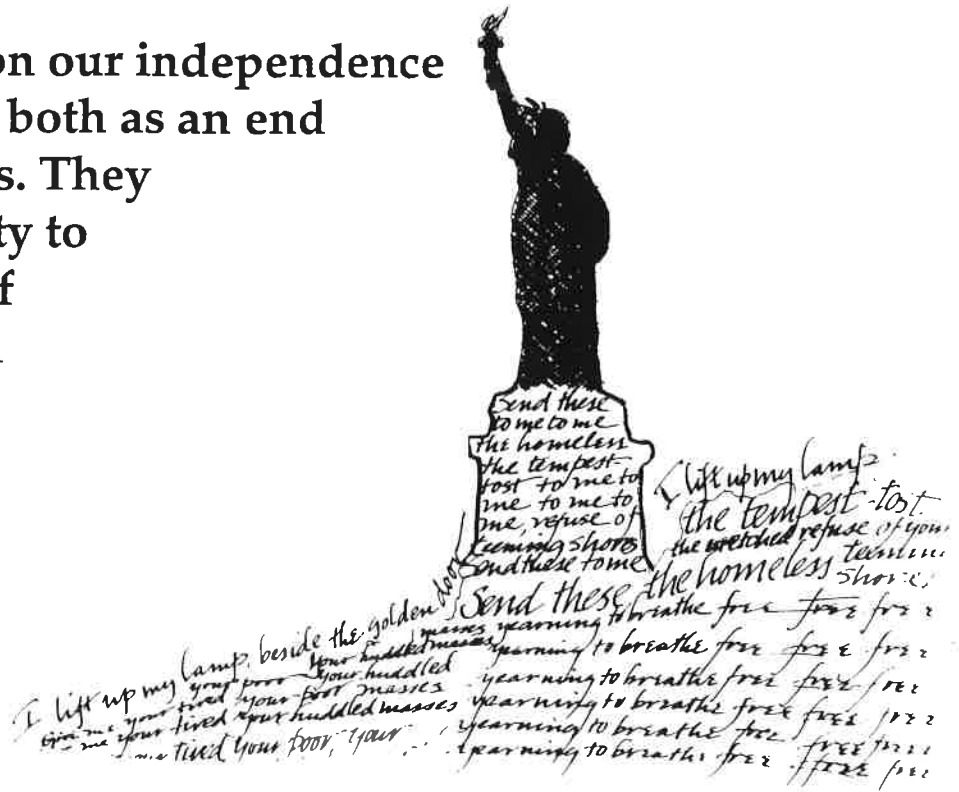 on our independence
both as an end
s. They
ty to
f
Send these
to me to me
the homeless
the tempest-
tost to me to
me to me to
me, refuse of
teeming shore
Send these to me
I lift up my lamp
the tempest-tost
the wretched refuse of your
the homeless teeming
shores
Send these
I lift up my lamp beside the golden door
masses yearning to breathe free free free
your poor your huddled masses yearning to breathe free free free
Give me your tired your poor your huddled
me your tired your huddled masses
masses
me tired your poor, your
yearning to breathe free free free
yearning to breathe free free free
yearning to breathe free free free
yearning to breathe free free free